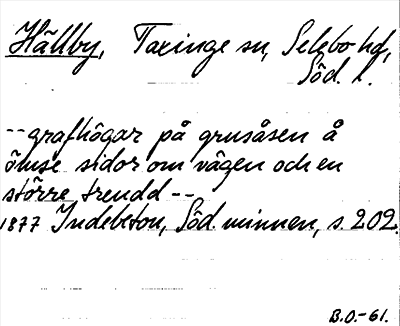 Hällby, Taxinge sn, Selebo hd,
Söd. l.
-- grafhögar på grusåsen å
ömse sidor om vägen och en
större treudd --
1877 Indebetou, Söd. minnen, s. 202.
B.O.-61.